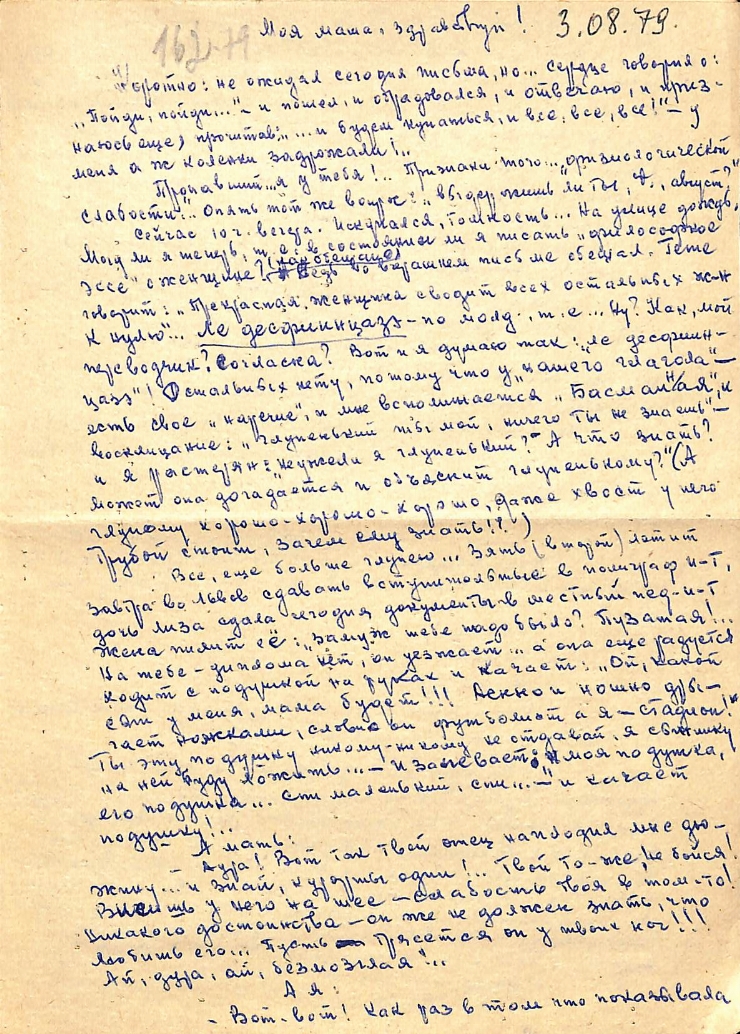 Моя маша, здравствуй! 3.08.79.
162-79
Коротко: не ожидал сегодня письма, но... сердце говорило:
"Пойди, пойди..." – и пошел, и обрадовался, и отвечаю, и приз-
наюсь еще, прочитав: "... и будем купаться, и все, все, все!" – у
меня аж коленки задрожали!..
Пропавший... я у тебя!.. Признаки того... "физиологической
слабости"... Опять тот же вопрос: "Выдержишь ли ты, август?"
Сейчас 10 ч. вечера. Искупался, томность... На улице дождь.
Могу ли я теперь, т.е. в состоянии ли я писать "философское
эссе" о женщине? Ведь во вчерашнем письме обещал. Гете
говорит: "Прекрасная женщина сводит всех остальных ж-н
к нулю"... Ле десфиинцазэ – по молд., т.е... Ну? Как, мой
переводчик? Согласна? Вот и я думаю так: ле десфиин-
цазэ"! Остальных нету, потому что у нашего "глагола" –
есть свое "наречие", и мне вспоминается "Басманная", и
восклицание: "Глупенький ты мой, ничего ты не знаешь" –
и я растерян: "неужели я глупенький?" А что знать?
может она догадается и объяснит глупенькому?" (А
глупому хорошо-хорошо-хорошо, даже хвост у него
трубой стоит, зачем ему знать!?)
Все, еще больше глупею... Зять (второй) летит
завтра во Львов сдавать вступительные в полиграф и-т,
дочь лиза сдала сегодня документы в местный пед-и-т
Жена пилит её: "Замуж тебе надо было? Пузатая!...
На тебе – диплома нет, он уезжает... а она еще радуется
ходит с подушкой на руках и качает: "Ой, какой
сын у меня, мама будет!!! Денно и ношно дры-
гает ножками, словно он футболист а я – стадион!
Ты эту подушку никому-никому не отдавай, я сыжику
на ней буду ложить... – и запевает: моя подушка,
его подушка... спи маленький, спи..." и качает
подушку!..
– А мать:
– Дура! Вот так твой отец наплодил мне дю-
жину... и знай, курорты одни!... Твой то-же, не бойся!
Висишь у него на шее – слабость твоя в том-то!
никакого достоинства – он же не должен знать, что
любишь его... Пусть трясется он у твоих ног!!!
Ай, дура, ай, безмозглая"...
А я:
– Вот-вот! Как раз в том что показывала